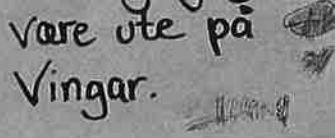 være ute på
Vingar.